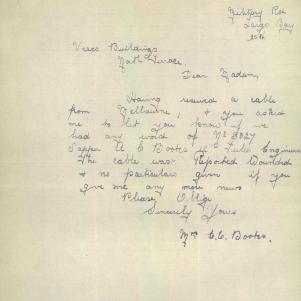 Military Rd
Largs Bay
Vercs Buildings
North Terrace.
Dear Madam,
Having received a cable
from Melbourne, & you asked
me to let you know if we
had any word of No 3327
Sapper A C Bootes Field Engineers
The cable was Reported Wounded
& no particulars given if you
give me any more news
Please Oblige
Sincerely Yours
Mrs C. C. Bootes.